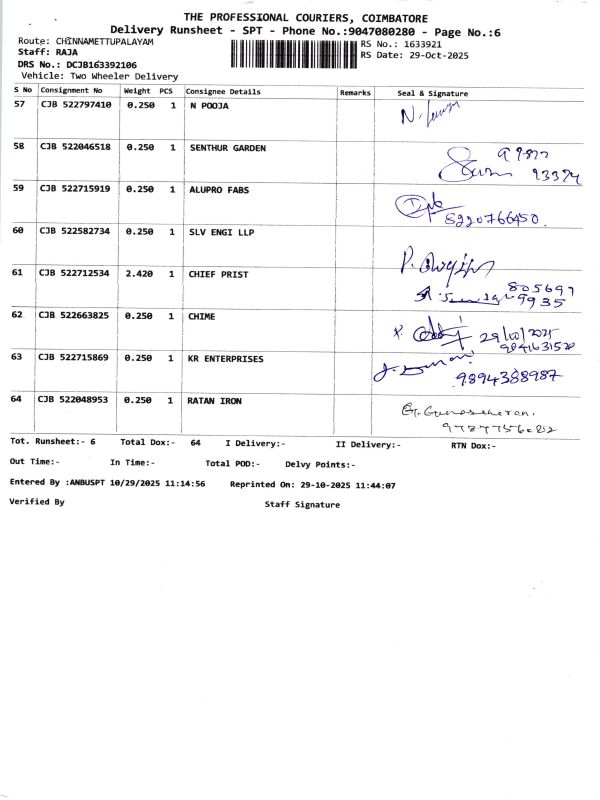 THE PROFESSIONAL COURIERS, COIMBATORE
Delivery Runsheet - SPT - Phone No.:9047080280 - Page No.:6
Route: CHINNAMETTUPALAYAM
RS No.: 1633921
Staff: RAJA
RS Date: 29-Oct-2025
DRS No.: DCJB163392106
Vehicle: Two Wheeler Delivery
S No Consignment No Weight PCS Consignee Details Remarks Seal & Signature
57 CJB 522797410 0.250 1 N POOJA N.
58 CJB 522046518 0.250 1 SENTHUR GARDEN
59 CJB 522715919 0.250 1 ALUPRO FABS
8220766450.
60 CJB 522582734 0.250 1 SLV ENGI LLP
61 CJB 522712534 2.420 1 CHIEF PRIST 805697
9935
62 CJB 522663825 0.250 1 CHIME 29/10/2025
63 CJB 522715869 0.250 1 KR ENTERPRISES
9894388987
64 CJB 522048953 0.250 1 RATAN IRON G. Gunasekaran.
Tot. Runsheet:- 6 Total Dox:- 64 I Delivery:- II Delivery:- RTN Dox:-
Out Time:- In Time:- Total POD:- Delvy Points:-
Entered By :ANBUSPT 10/29/2025 11:14:56 Reprinted On: 29-10-2025 11:44:07
Verified By Staff Signature